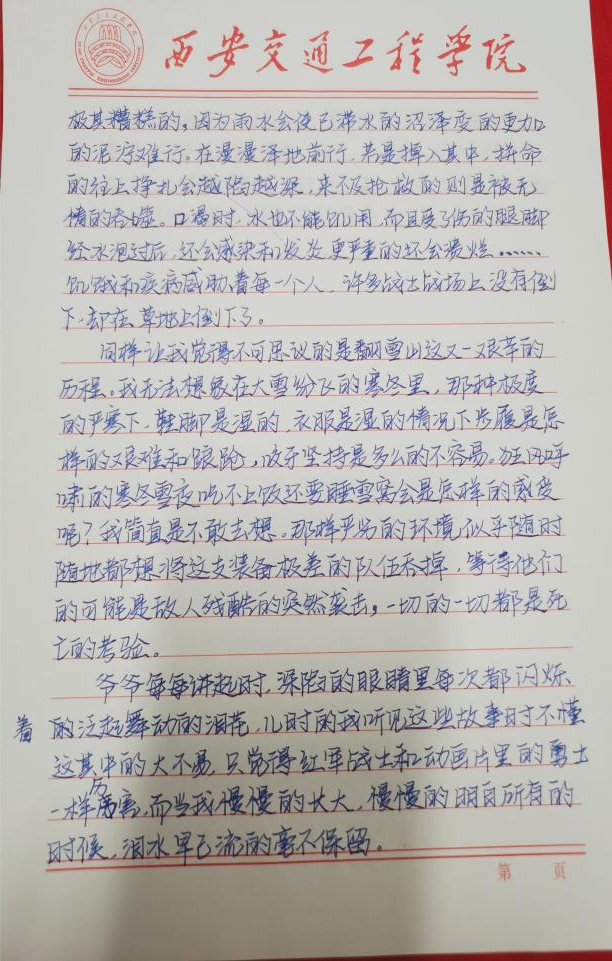 西安交通工程学院
极其糟糕的，因为雨水会使已滞水的沼泽变的更加
的泥泞难行。在漫漫泽地前行，若是掉入其中，拼命
的往上挣扎会越陷越深，来不及抢救的则是被无
情的吞噬。口渴时，水也不能饮用，而且受了伤的腿脚
经水泡过后，还会感染和发炎更严重的坏会溃烂……
饥饿和疾病威胁着每一个人，许多战士战场上没有倒
下，却在草地上倒下了。
同样让我觉得不可思议的是翻雪山这又一艰辛的
历程。我无法想象在大雪纷飞的寒冬里，那种极度
的严寒下，鞋脚是湿的，衣服是湿的情况下步履是怎
样的艰难和踉跄，收手坚持是多么的不容易。狂风呼
啸的寒冬雪夜吃不上饭还要睡雪窝会是怎样的感受
呢？我简直是不敢去想。那样严劣的环境似乎随时
随地都想将这支装备极差的队伍吞掉，等待他们
的可能是敌人残酷的突然袭击，一切的一切都是死
亡的考验。
爷爷每每讲起时，深陷的眼睛里每次都闪烁
着的泛起舞动的泪花，儿时的我听见这些故事时不懂
这其中的大不易，只觉得红军战士和动画片里的勇士
一样厉害，而当我慢慢的长大，慢慢的明白所有的
时候，泪水早已流的毫不保留。
第 页